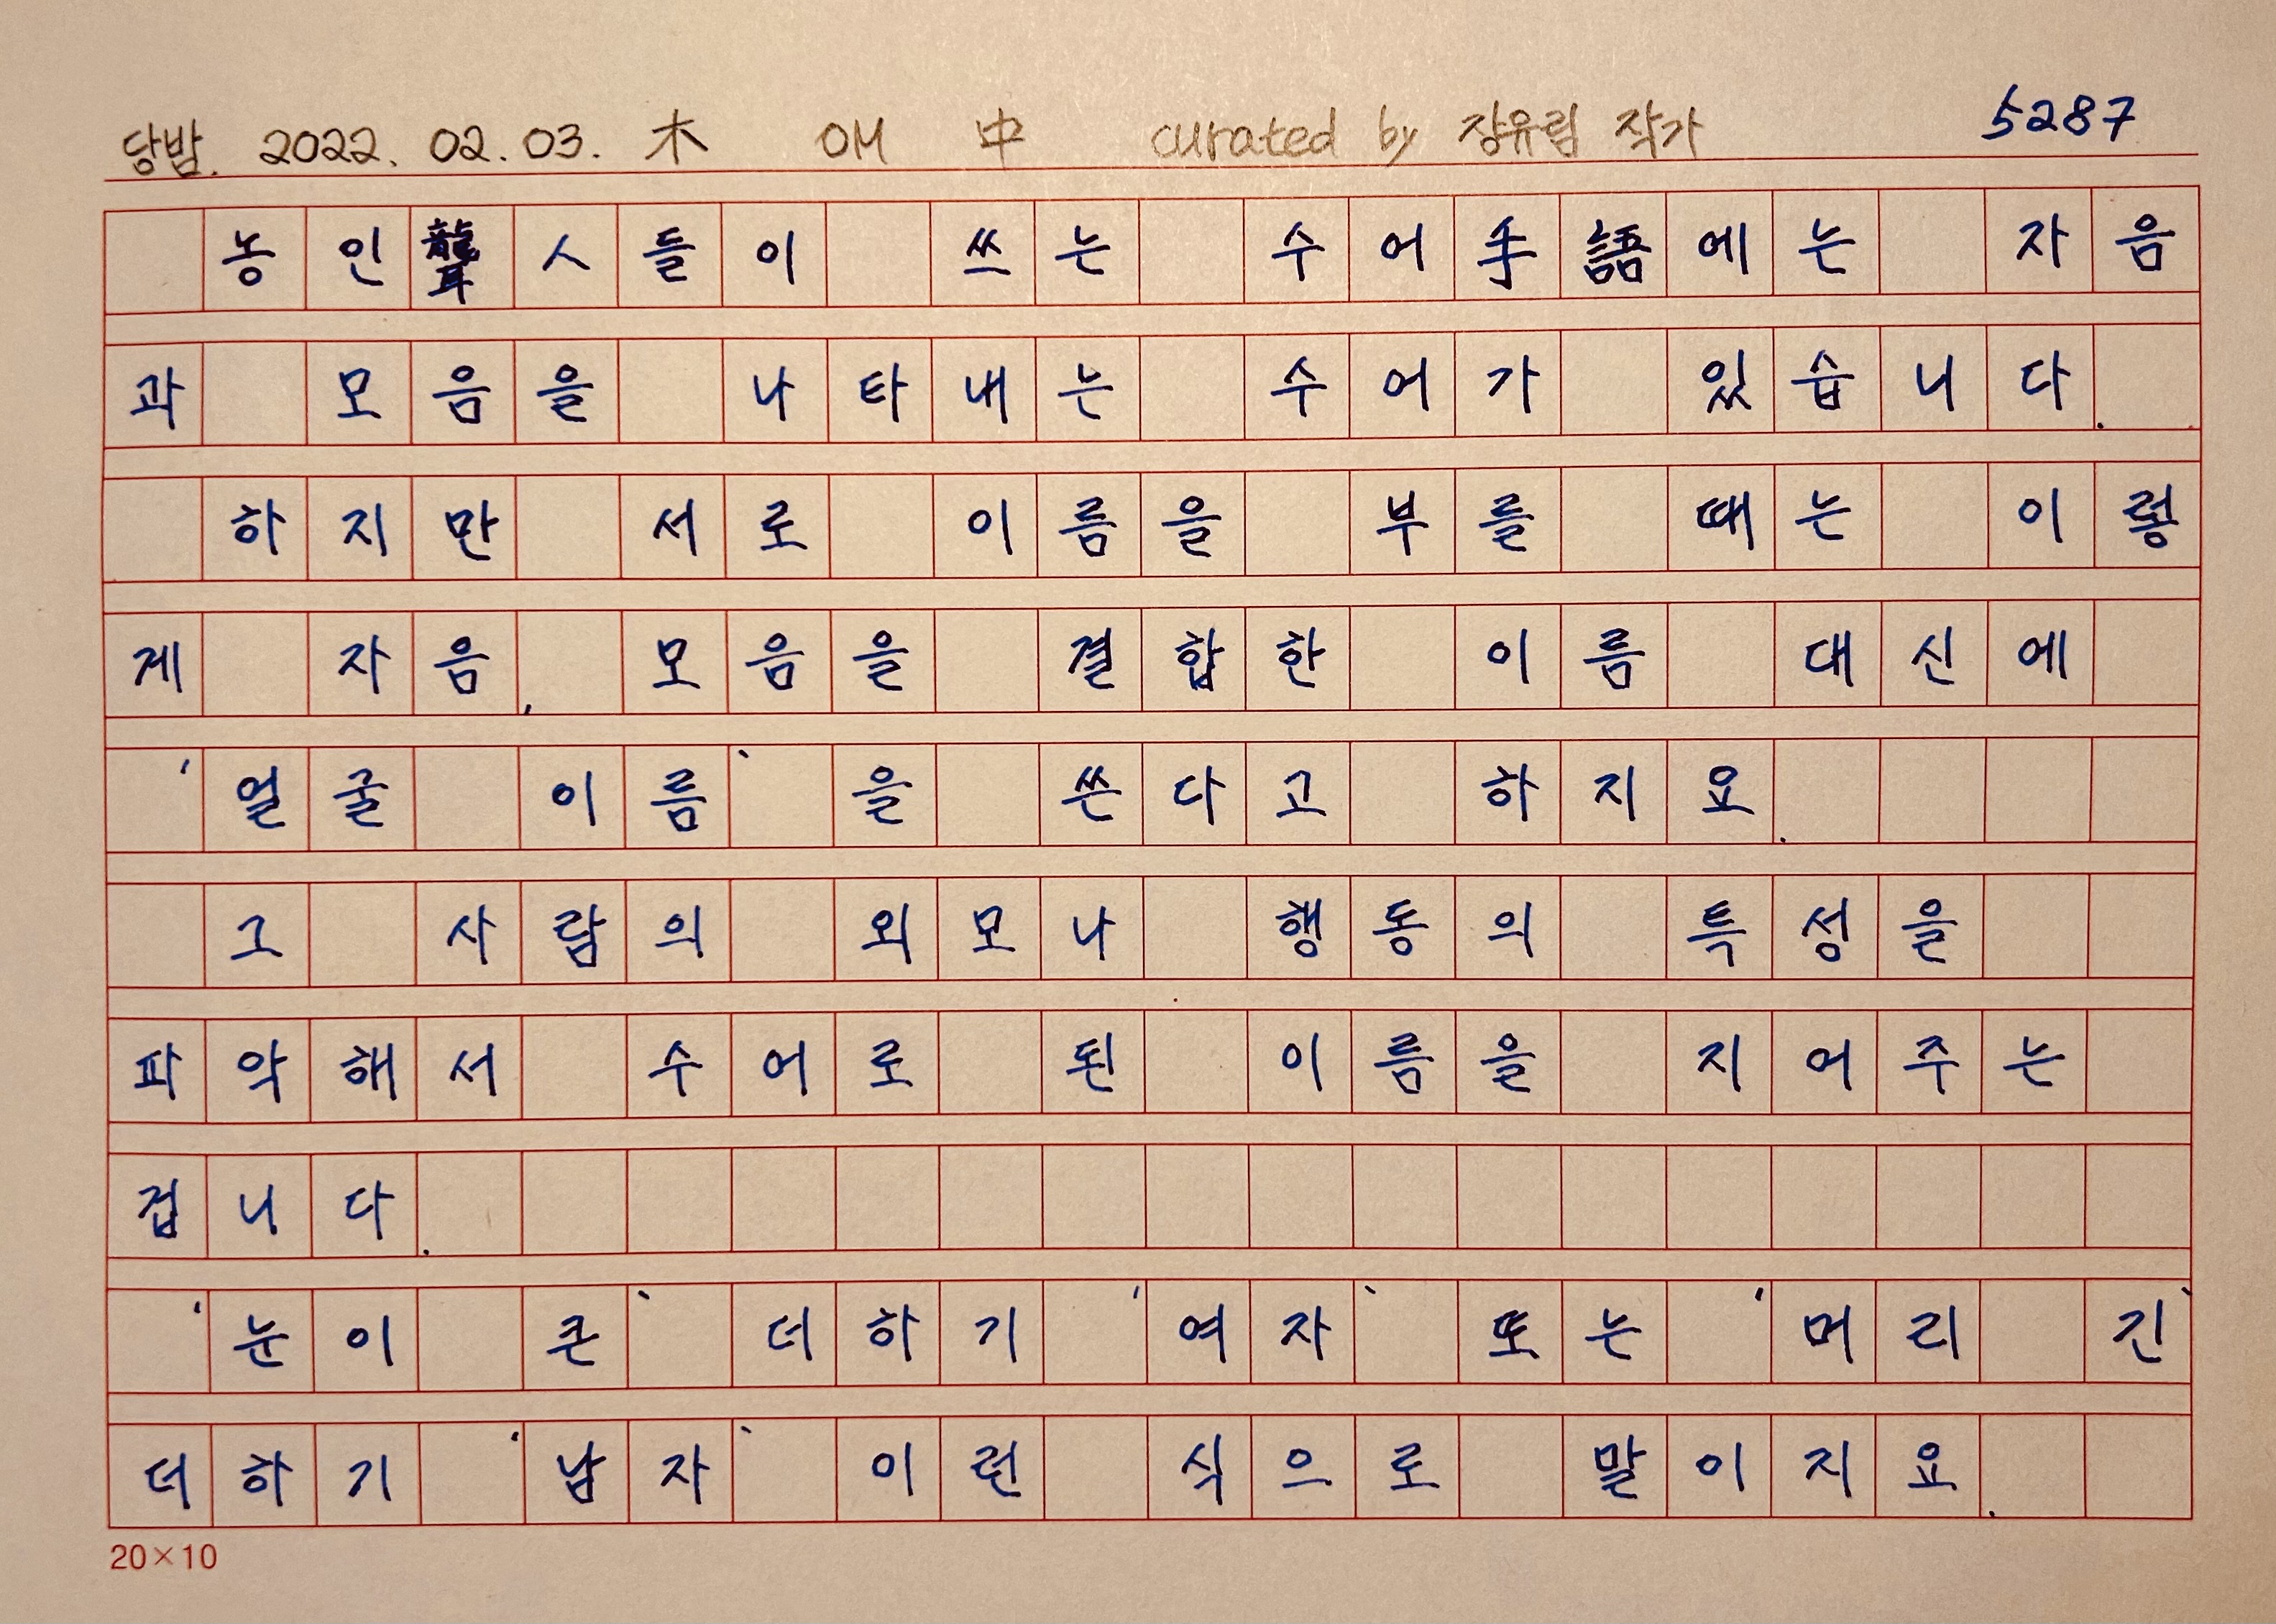 당밤. 2022. 02. 03. 木 OM 中 curated by 장유림 작가 5287
농인聾人들이 쓰는 수어手語에는 자음
과 모음을 나타내는 수어가 있습니다.
하지만 서로 이름을 부를 때는 이렇
게 자음, 모음을 결합한 이름 대신에
'얼굴 이름'을 쓴다고 하지요.
그 사람의 외모나 행동의 특성을
파악해서 수어로 된 이름을 지어주는
겁니다.
'눈이 큰' 더하기 '여자' 또는 '머리 긴'
더하기 '남자' 이런 식으로 말이지요.
20×10